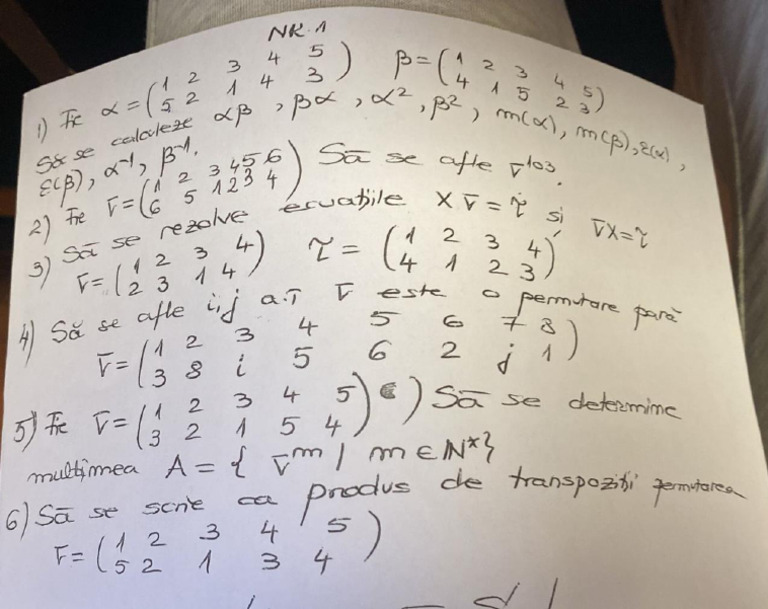 NR. 1
1) Fie α = (1 2 3 4 5 / 5 2 1 4 3) β = (1 2 3 4 5 / 4 1 5 2 3)
Să se calculeze αβ, βα, α², β², m(α), m(β), ε(α),
ε(β), α⁻¹, β⁻¹.
2) Fie σ = (1 2 3 4 5 6 / 6 5 1 2 3 4) Să se afle σ¹⁰³.
3) Să se rezolve ecuațiile Xσ = τ și σX = τ
σ = (1 2 3 4 / 2 3 1 4) τ = (1 2 3 4 / 4 1 2 3)
4) Să se afle i,j a.î σ este o permutare pară
σ = (1 2 3 4 5 6 7 8 / 3 8 i 5 6 2 j 1)
5) Fie σ = (1 2 3 4 5 / 3 2 1 5 4) ) Să se determine
mulțimea A = { σᵐ / m ∈ N*}
6) Să se scrie ca produs de transpoziții permutarea
σ = (1 2 3 4 5 / 5 2 1 3 4)